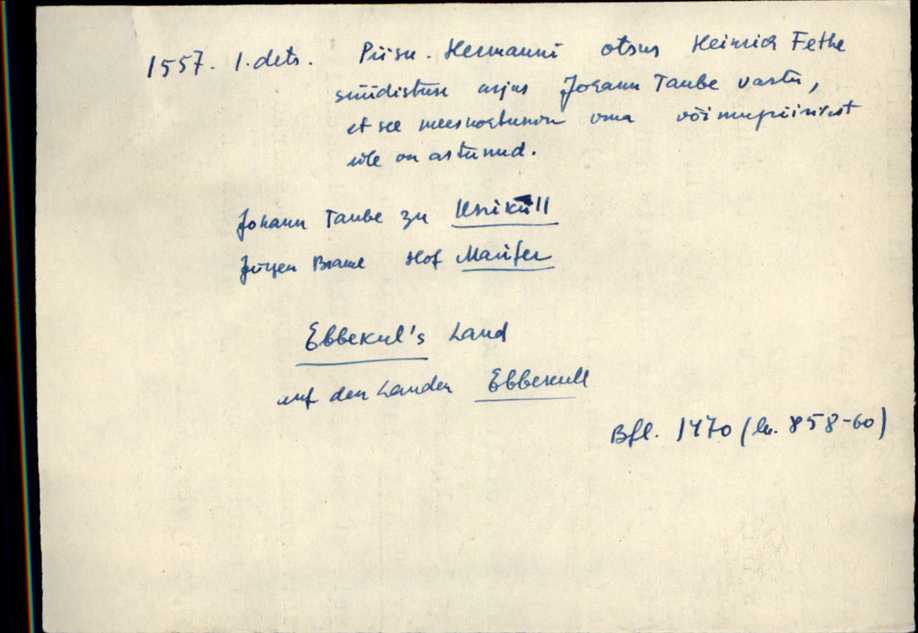 1557. 1. dets. Piisk. Hermanni otsus Heinrich Fethe
süüdistuse asjus Johann Taube vastu,
et see meeskohtuniku oma võimupiirist
üle on astunud.
Johann Taube zu Uxiküll
Jürgen Brakel Hof Marifer
Ebbekul's Land
auf den Landen Ebbekull
Bfl. 1470 (lk. 858-60)